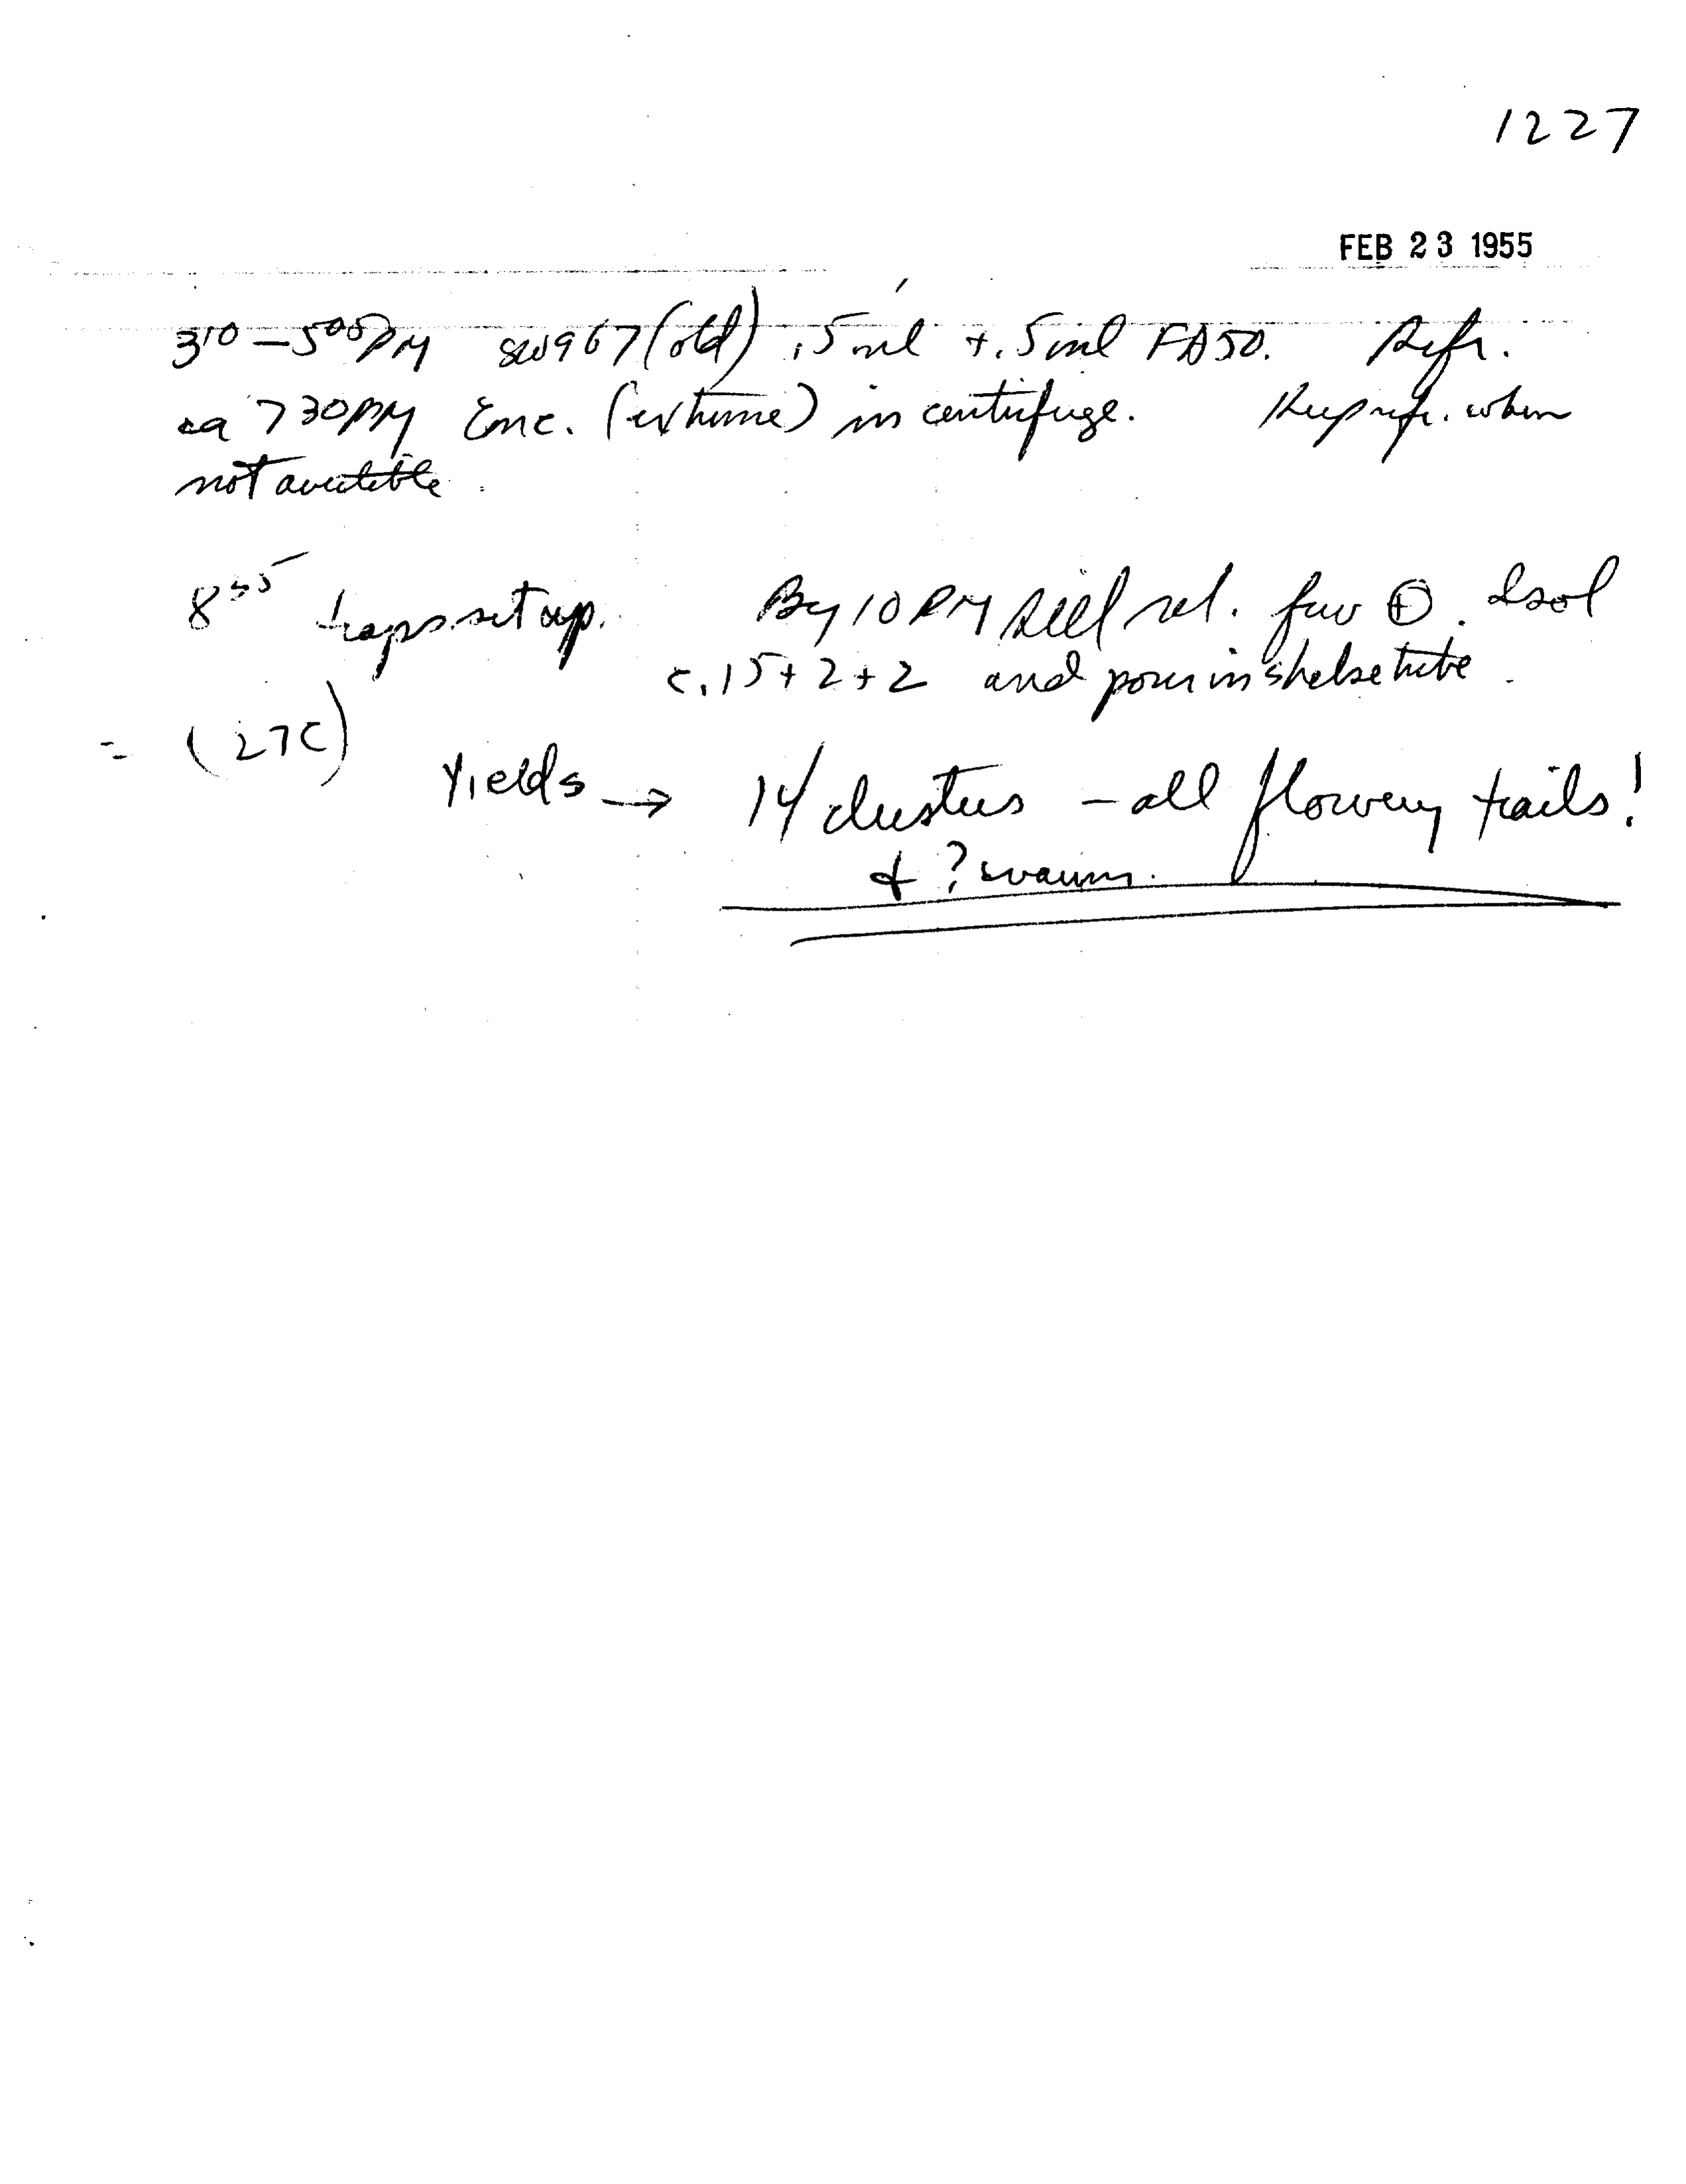 1227
FEB 23 1955
3¹⁰ – 5⁰⁵ PM SW967 (old) .5 ml + .5 ml FA50. Refr.
ca 730 PM Enc. (extreme) in centrifuge. Keep refr. when
not available.
8⁵⁵ traps set up. By 10 PM still rel. few ⊕. Isol
c. 15 + 2 + 2 and pour in tube.
= (27C)
Yields → 14 clusters – all flowery trails!
+ ? swarm.